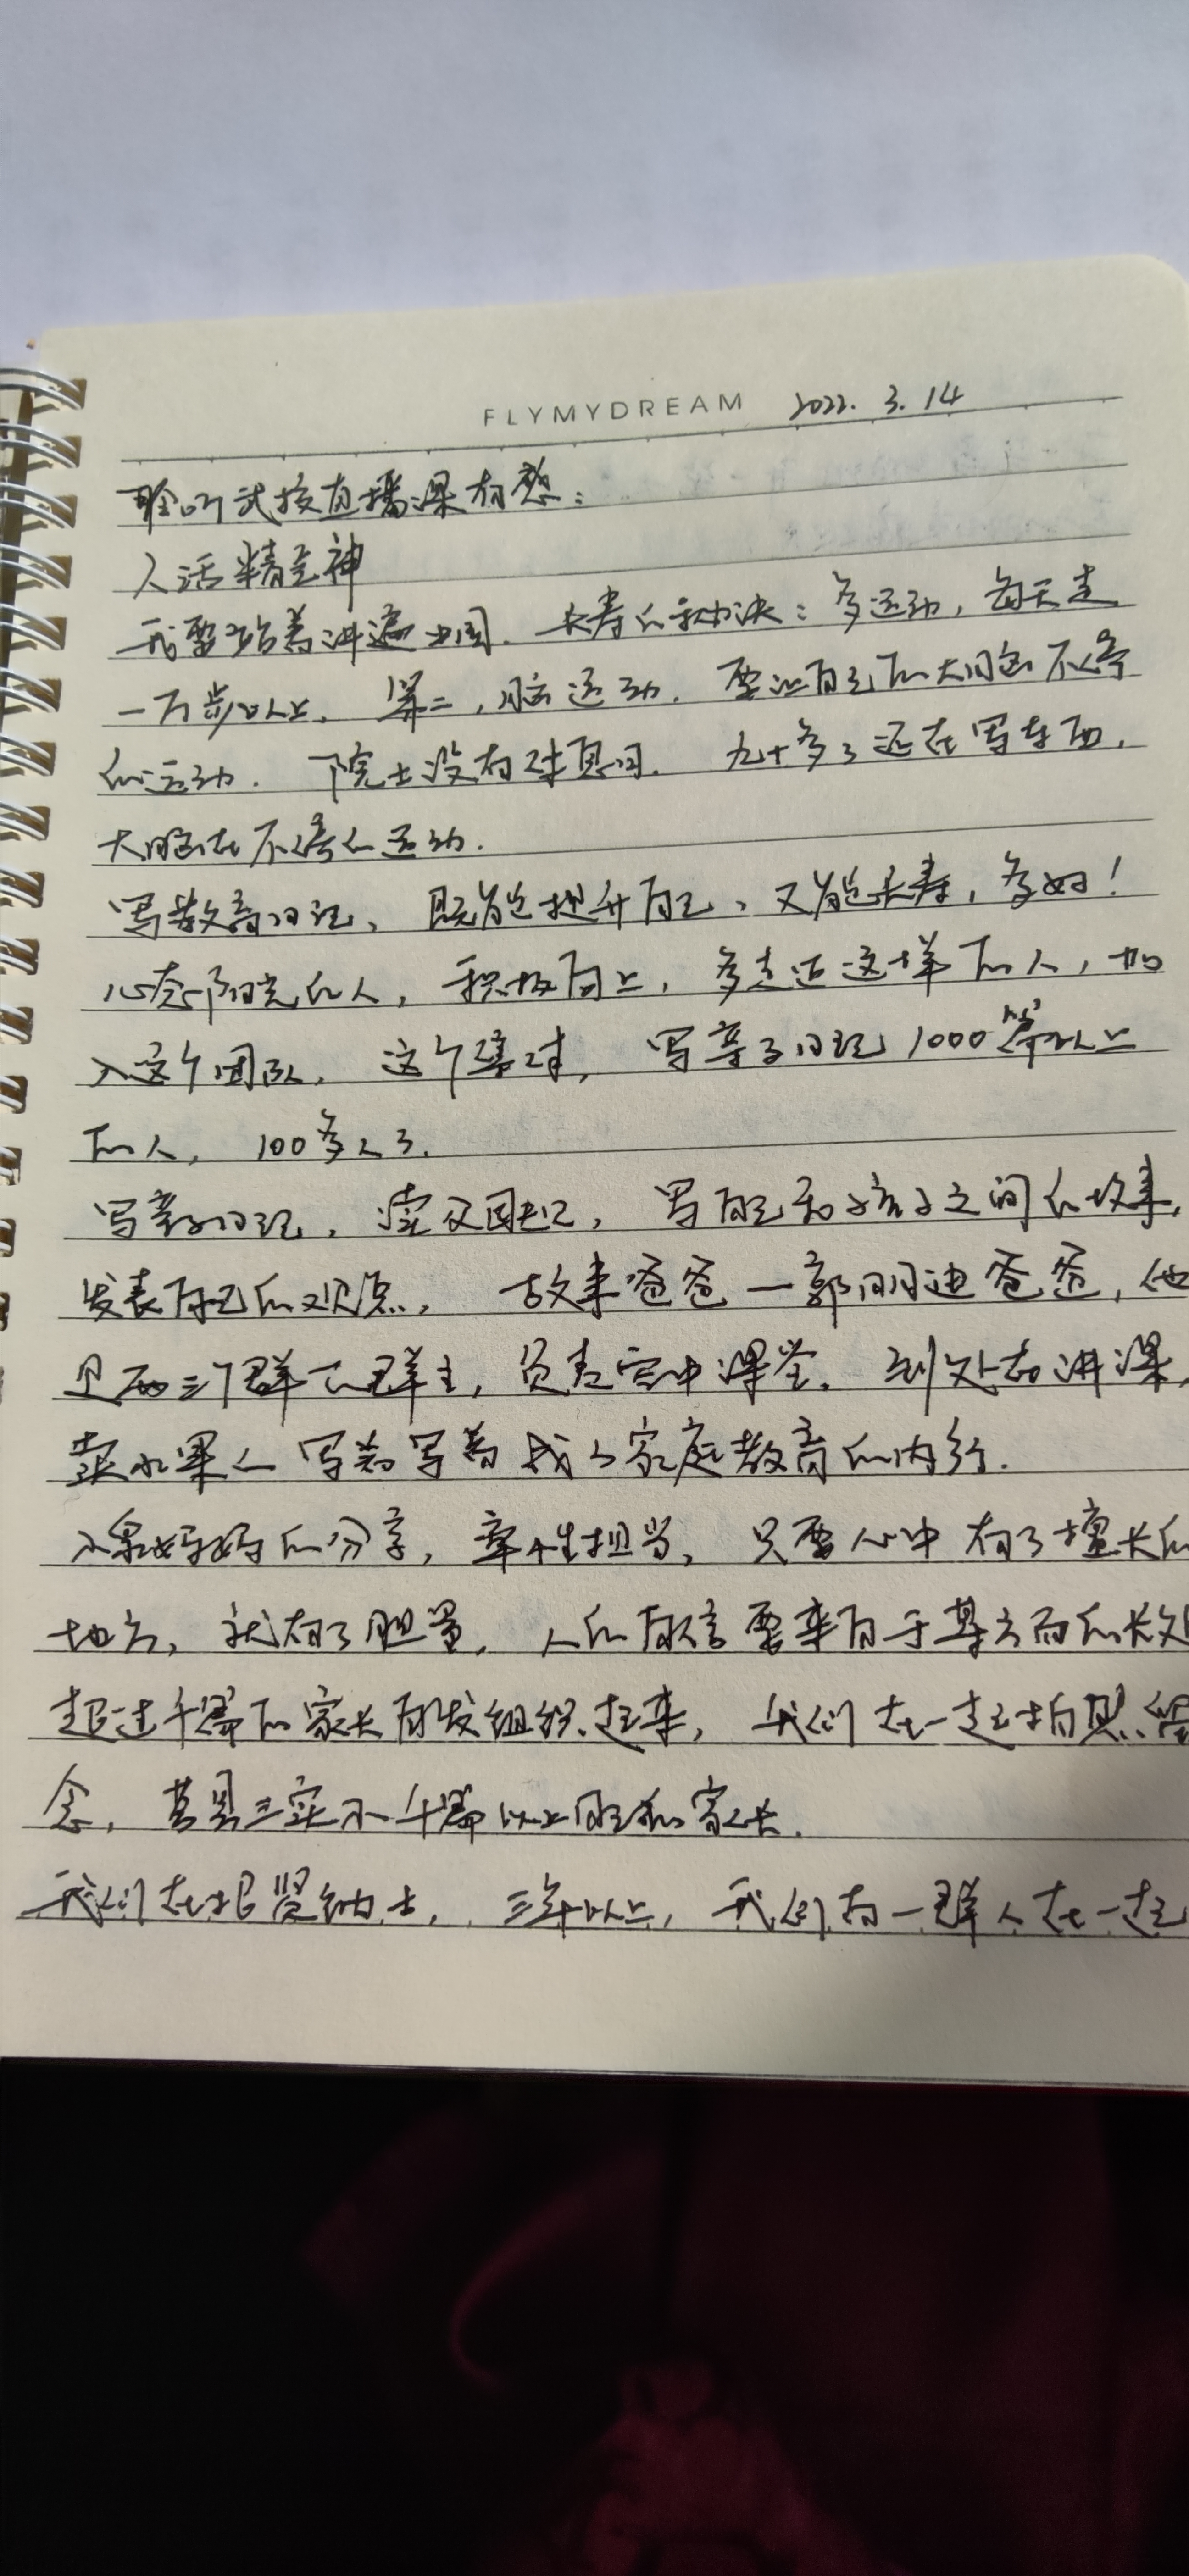 FLYMYDREAM 2022. 3. 14
聆听武校直播课有感：
人活精气神
我要站着讲遍中国。长寿的秘诀：多运动，每天走
一万步以上。第二，脑运动。要让自己的大脑不停
的运动。院士没有休息日。九十多了还在写东西，
大脑在不停的运动.
写教育日记，既能提升自己，又能长寿，多好！
心态阳光的人，积极向上，多走近这样的人，加
入这个团队，这个集体，写亲子日记1000篇以上
的人，100多人了.
写亲子日记，写自己和孩子之间的故事，
发表自己的观点，故事爸爸—郭明迪爸爸，他
是两三个群的群主，负责空中课堂。到处去讲课，
卖水果的写着写着成了家庭教育的内行.
妈妈的分享，率性担当，只要心中有了擅长的
地方，就有了胆量，人的自信要来自于某方面的长处
超过千篇的家长自发组织起来，我们在一起拍照留
念，莒县三实小千篇以上日记的家长.
我们在招贤纳士，三年以上，我们有一群人在一起